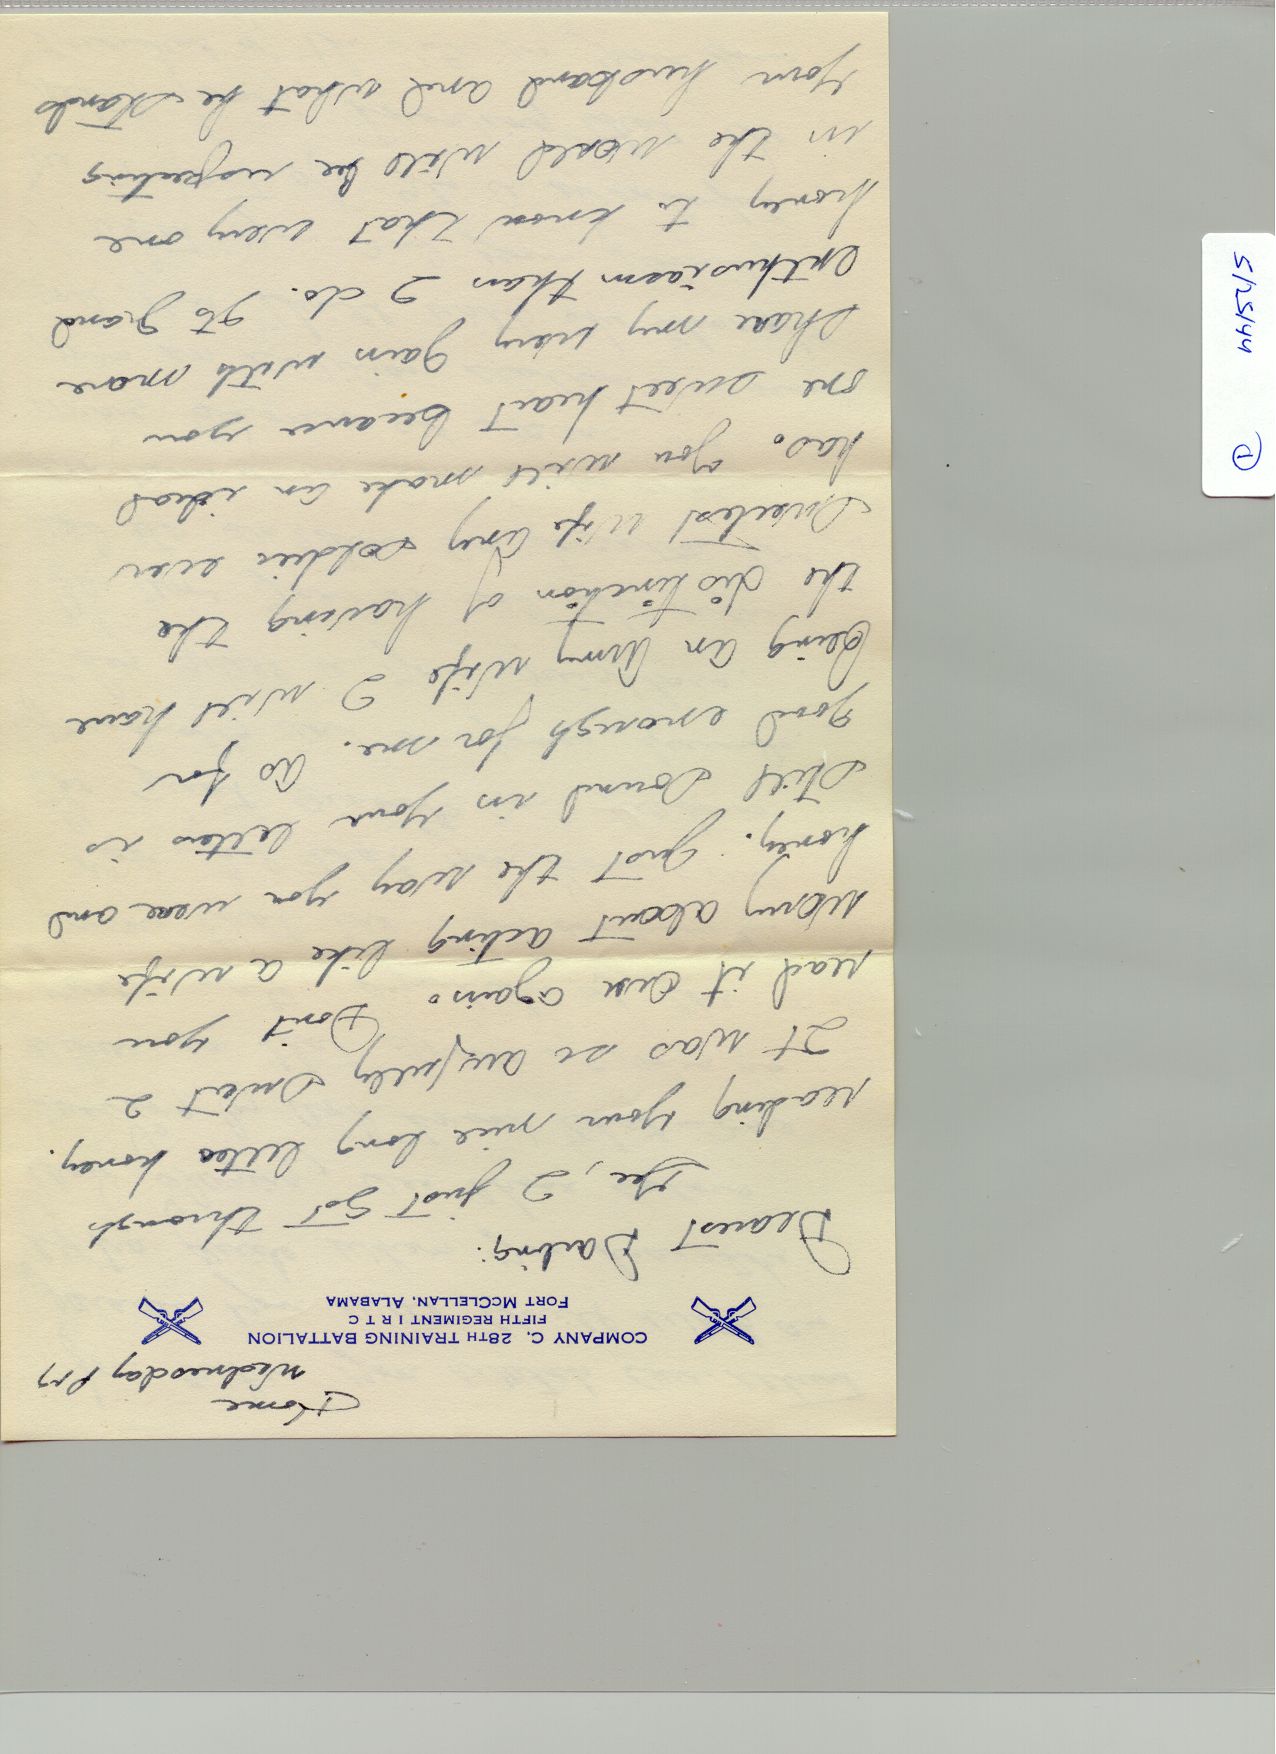 Home
Wednesday PM
COMPANY C, 28TH TRAINING BATTALION
FIFTH REGIMENT I R T C
FORT MCCLELLAN, ALABAMA
Dearest Darling:
Gee, I just got through
reading your nice long letter honey.
It was so awfully sweet I
read it over again. Don't you
worry about acting like a wife
honey. Just the way you were and
still sound in your letters is
good enough for me. As for
being an Army wife I will have
the distinction of having the
sweetest wife any soldier ever
has. You will make an ideal
one sweet heart because you
share my every gain with more
enthusiasm than I do. It's grand
honey to know that every one
in the world will be respecting
your husband and what he stands
5/25/44
1